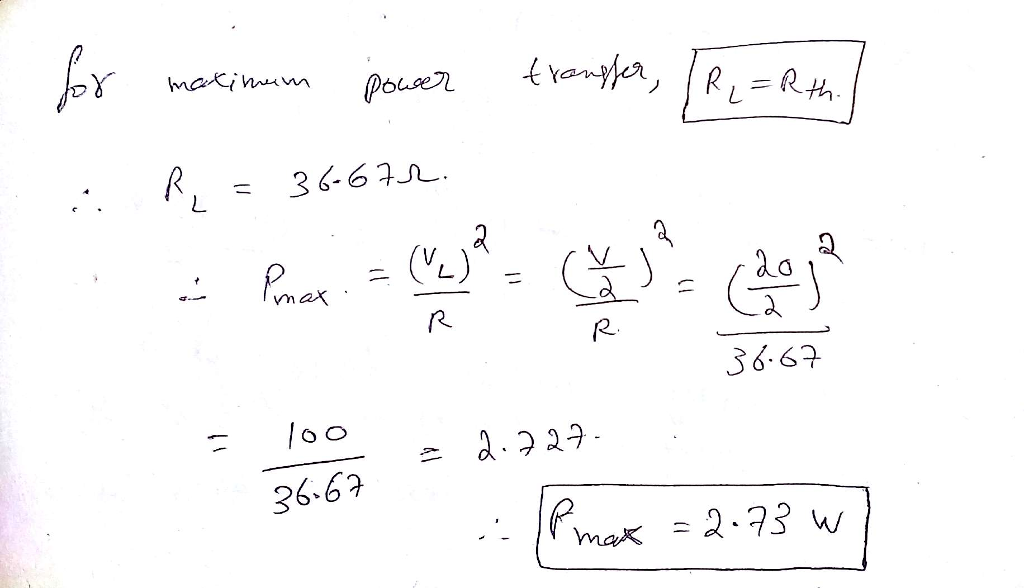 for maximum power transfer, R_L = R_th.
∴ R_L = 36.67Ω.
∴ P_max. = (V_L)²/R = (V/2)²/R. = (20/2)²/36.67
= 100/36.67 = 2.727.
∴ P_max = 2.73 W